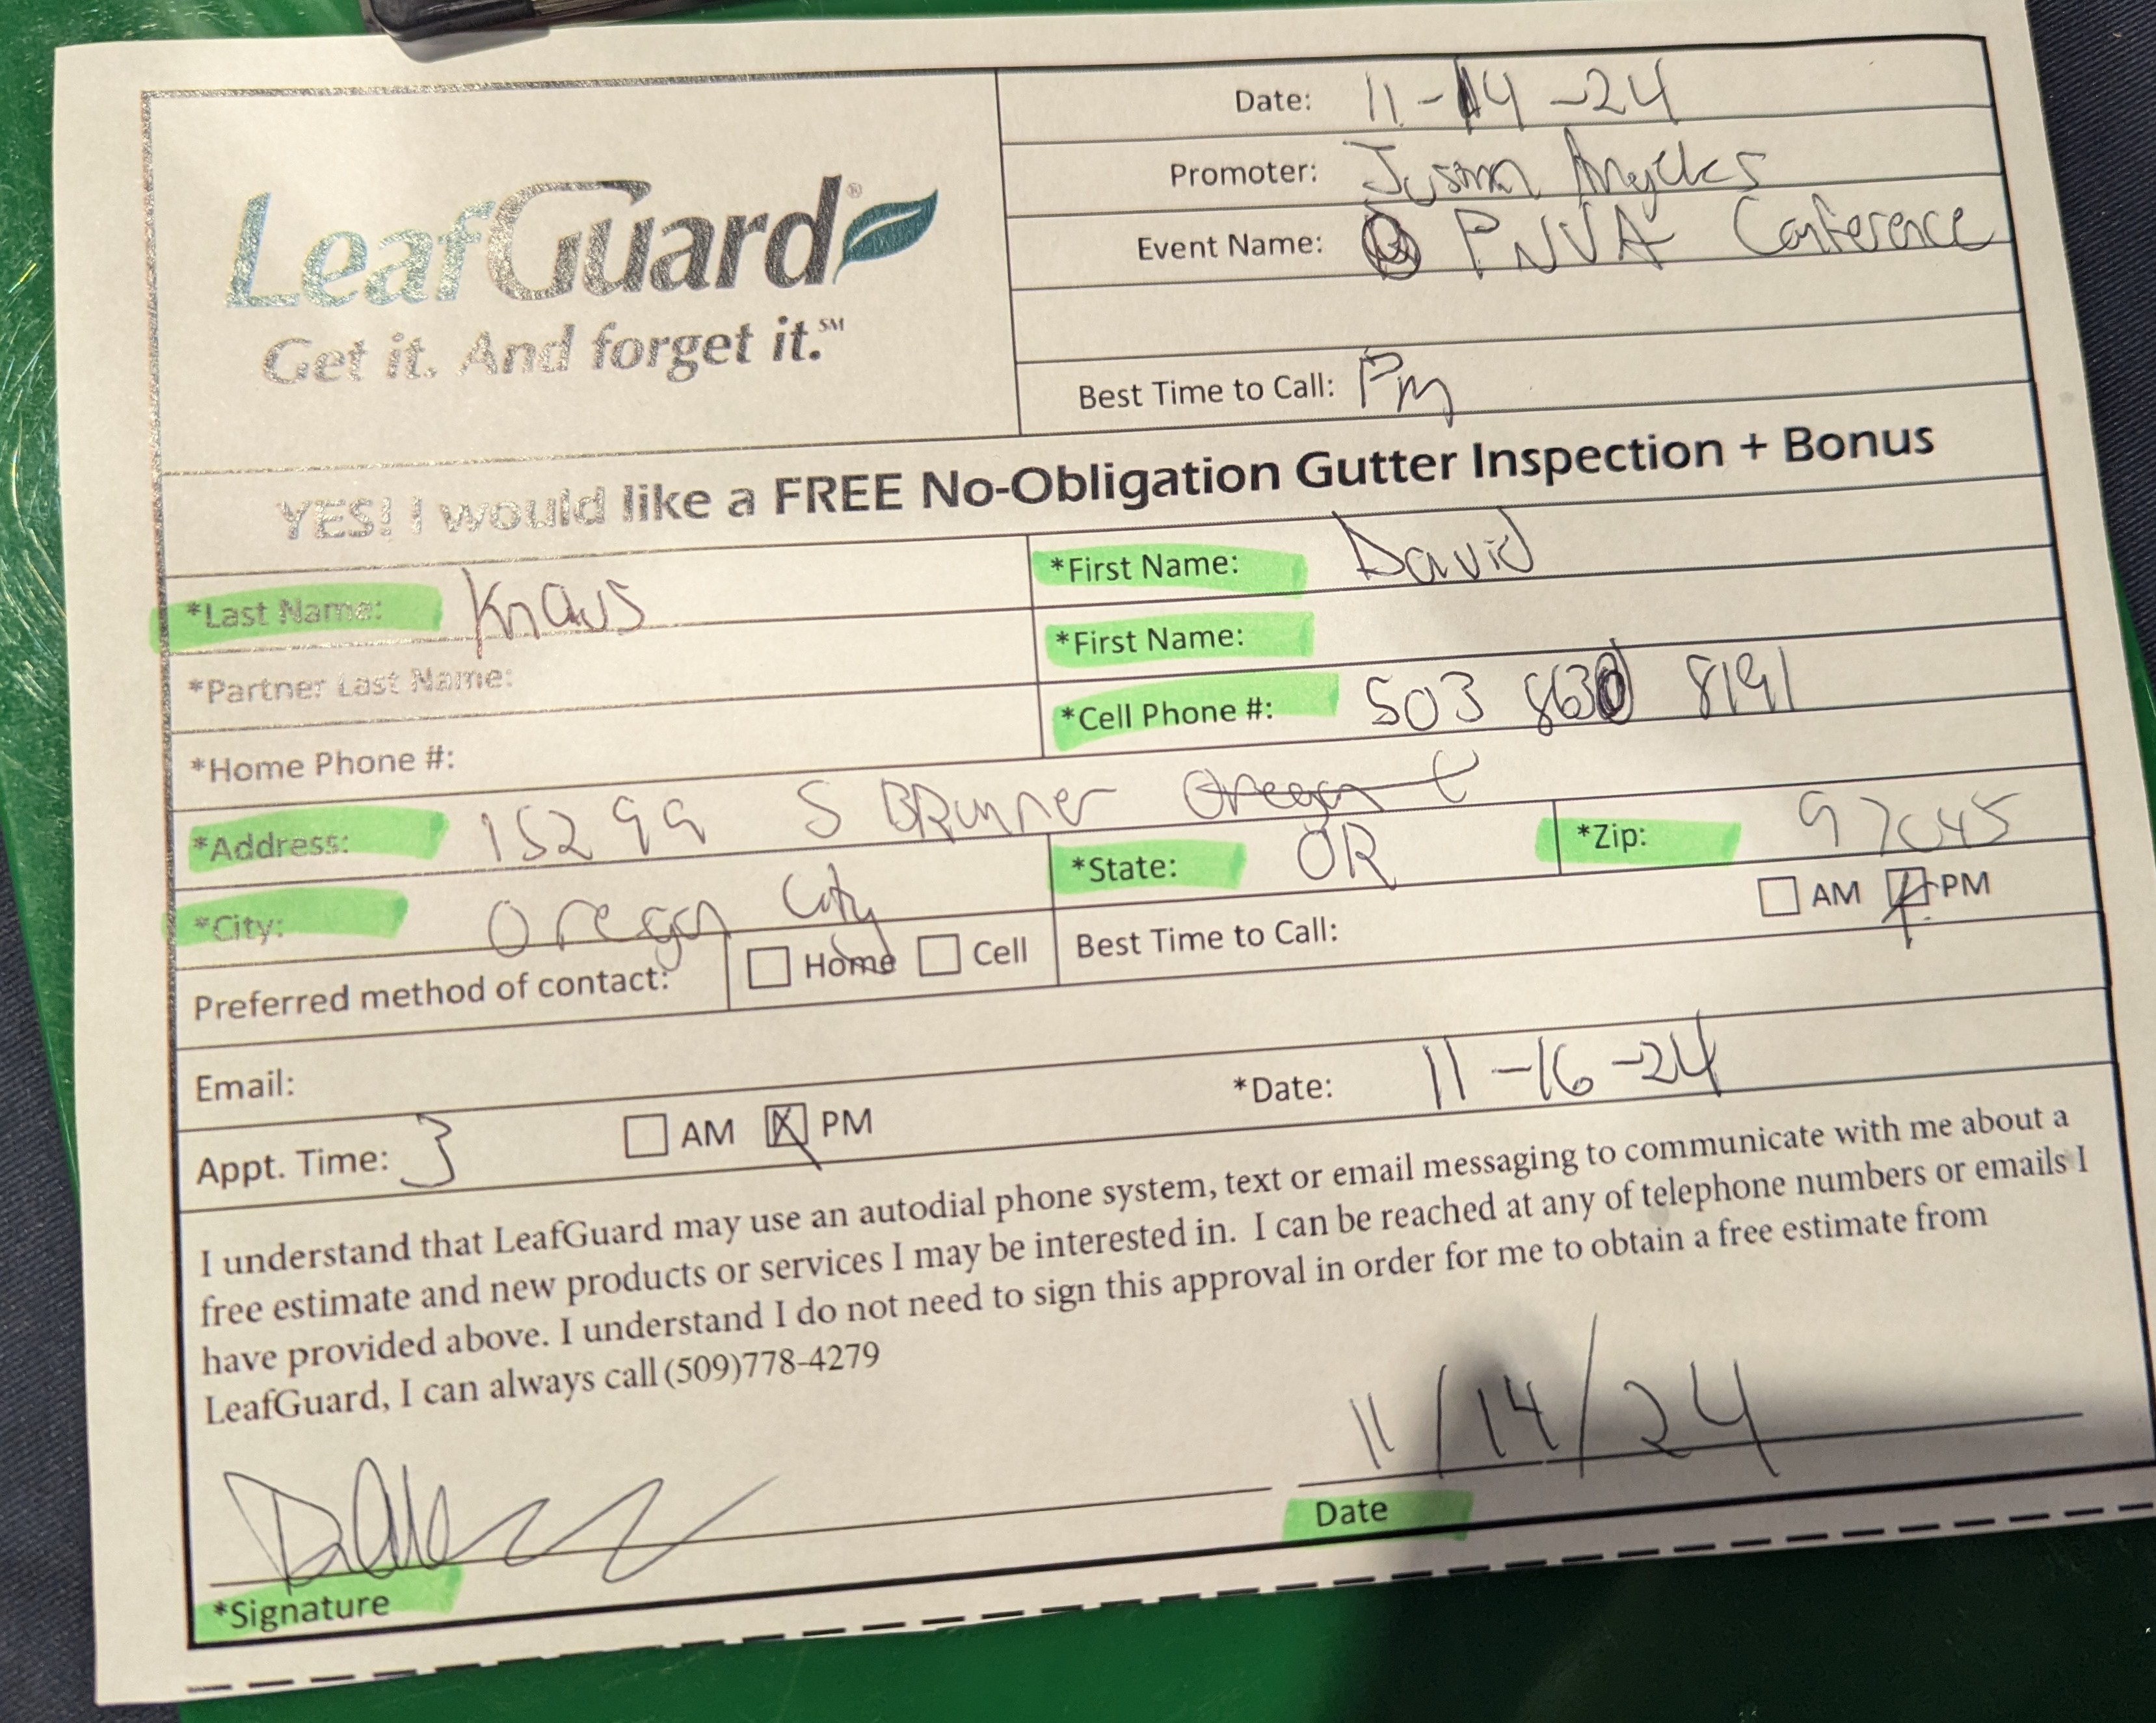 LeafGuard®
Get it. And forget it.℠
Date: 11-14-24
Promoter:
Event Name: PNVA Conference
Best Time to Call: Pm
YES! I would like a FREE No-Obligation Gutter Inspection + Bonus
*Last Name: Knaus *First Name: David
*Partner Last Name: *First Name:
*Home Phone #: *Cell Phone #: 503 8630 8191
*Address: 15299 S BRunner Oregon C
*City: Oregon City *State: OR *Zip: 97045
Preferred method of contact: Home Cell Best Time to Call: AM PM
Email:
Appt. Time: 3 AM PM *Date: 11-16-24
I understand that LeafGuard may use an autodial phone system, text or email messaging to communicate with me about a
free estimate and new products or services I may be interested in. I can be reached at any of telephone numbers or emails I
have provided above. I understand I do not need to sign this approval in order for me to obtain a free estimate from
LeafGuard, I can always call (509)778-4279
11/14/24
*Signature Date